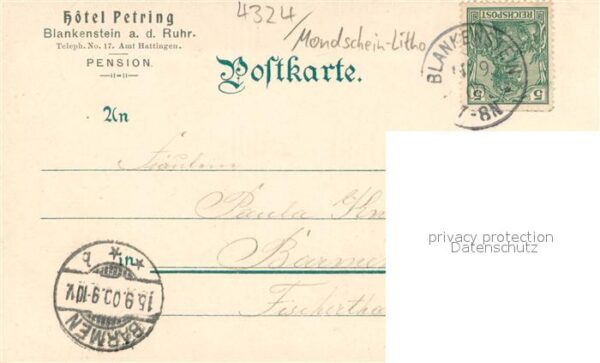 Hôtel Petring
Blankenstein a. d. Ruhr.
Teleph. No. 17. Amt Hattingen.
PENSION.
4324/
Mondschein-Litho
Postkarte.
REICHSPOST
5 5
BLANKENSTEIN
7-8N
An
Fräulein
Paula
in Barmen
privacy protection
Datenschutz
15.9.00.9-10V.
BARMEN